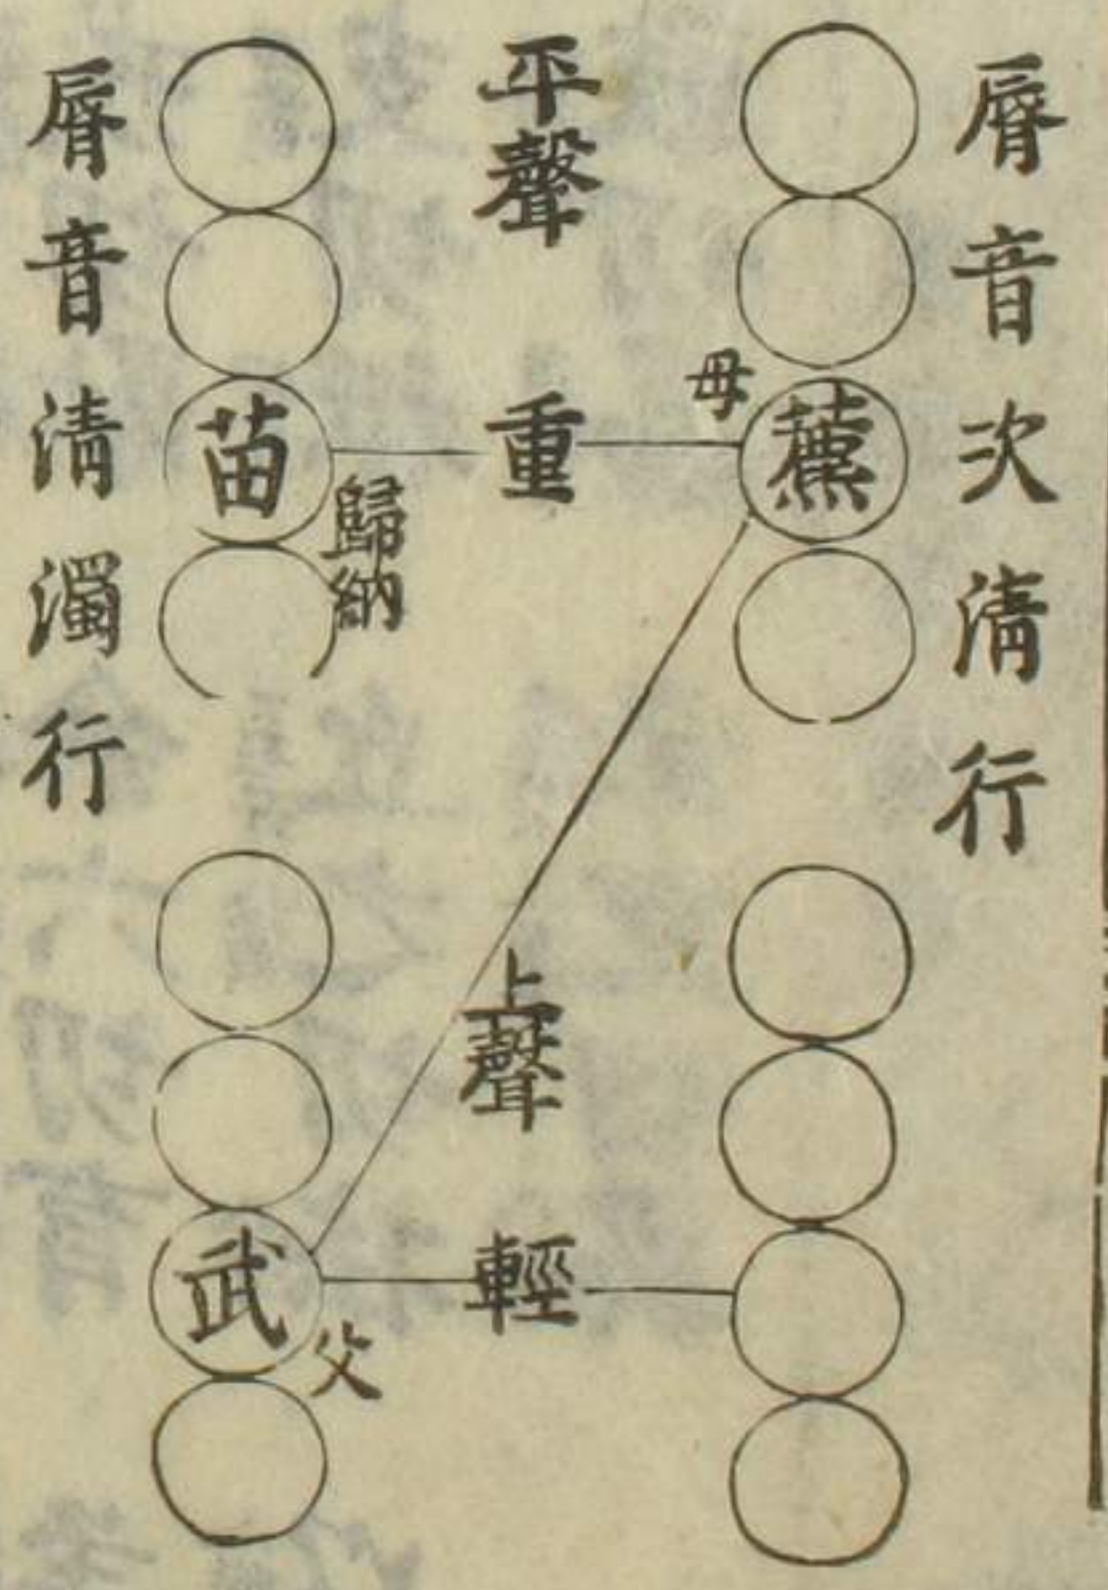 脣音次清行
母
藨
平聲
重
上聲
輕
歸納
苗
武
父
脣音清濁行